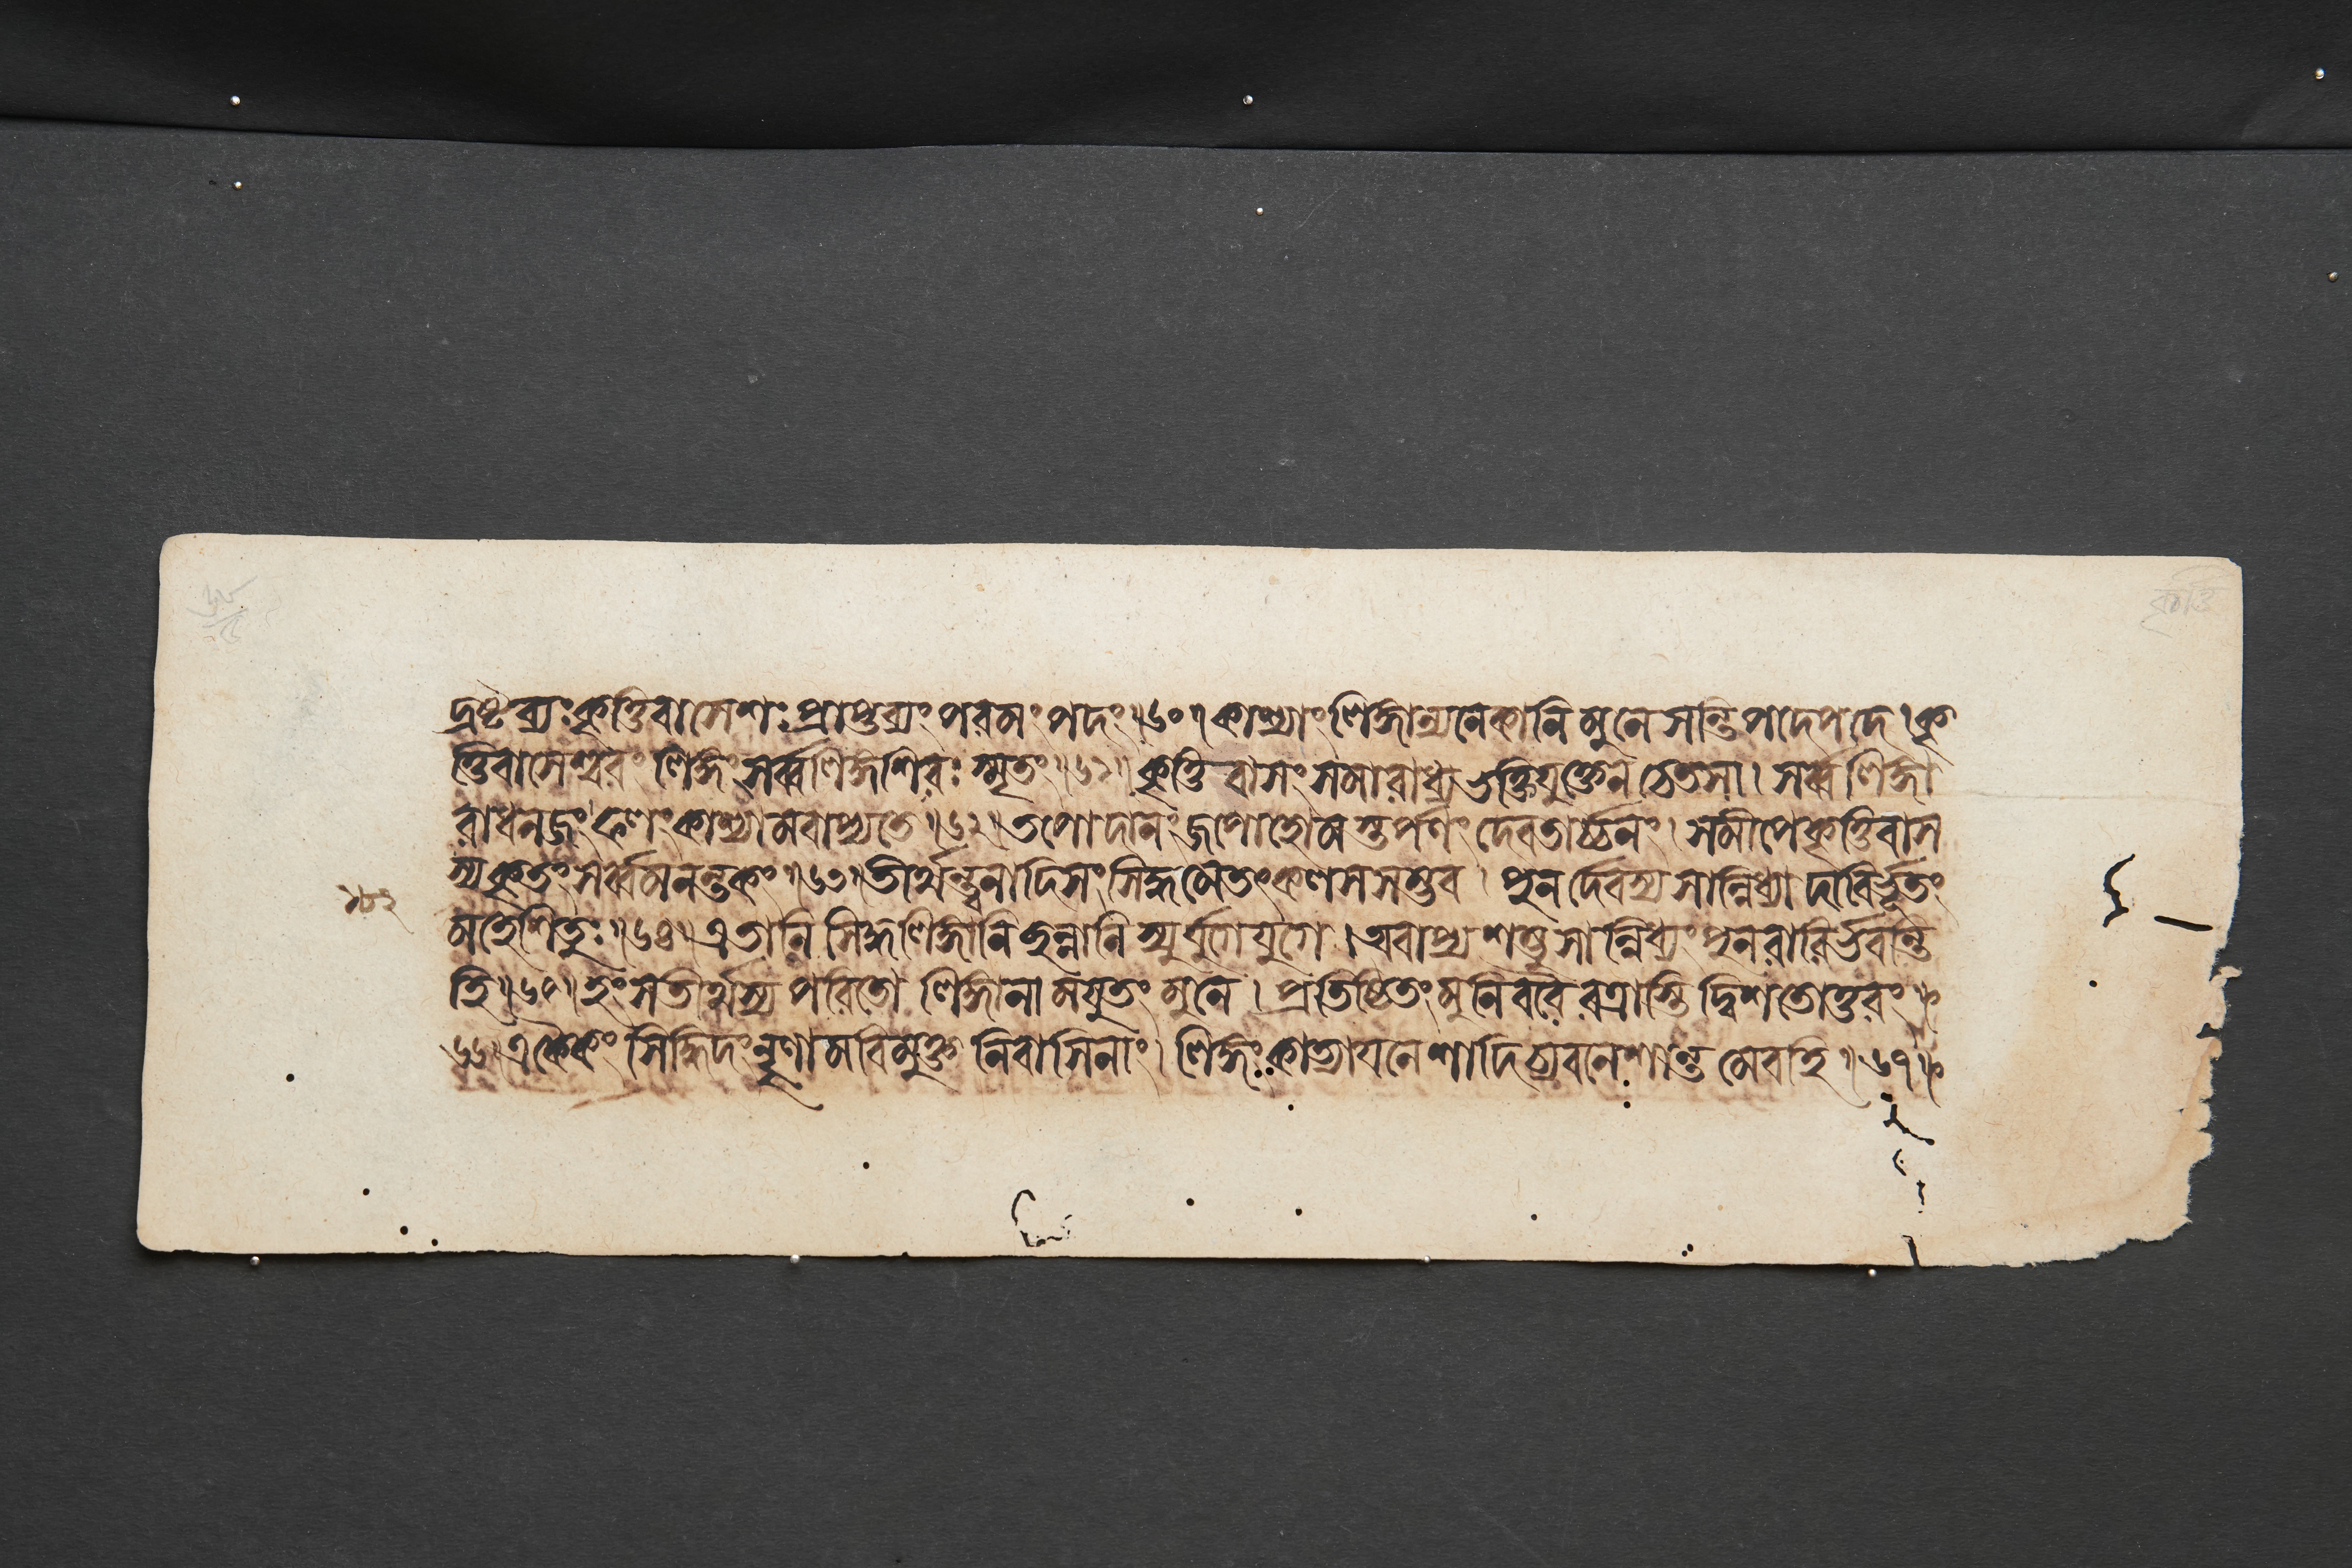 দ্রষ্টব্যঃ কৃত্তিবাসেশঃ প্রাপ্তব্যং পরমং পদং॥৬০॥ কাশ্যাং লিঙ্গান্যনেকানি মুনে সন্তি পদে পদে। কৃ
ত্তিবাসেশ্বরং লিঙ্গং সর্ব্বলিঙ্গশিরঃ স্মৃতং॥৬১॥ কৃত্তিবাসং সমারাধ্য ভক্তিযুক্তেন চেতসা। সর্ব্বলিঙ্গা
রাধনজং ফলং কাশ্যামবাপ্যতে॥৬২॥ তপো দানং জপো হোমস্তর্পণং দেবতার্চ্চনং। সমীপে কৃত্তিবাস
স্য কৃতং সর্ব্বমনন্তকং॥৬৩॥ তীর্থন্ত্বনাদিসংসিদ্ধমেতৎ কলসসম্ভব। পুনর্দেবস্য সান্নিধ্যাদাবির্ভূতং
মহেশিতুঃ॥৬৪॥ এতানি সিদ্ধলিঙ্গানি ছন্নানি স্যুর্যুগে যুগে। অবাপ্য শম্ভুসান্নিধ্যং পুনরাবির্ভবন্তি
হি॥৬৫॥ হংসতীর্থস্য পরিতো লিঙ্গানামযুতং মুনে। প্রতিষ্ঠিতং মুনিবরৈরত্রাস্তি দ্বিশতোত্তরং॥
৬৬॥ একৈকং সিদ্ধিদং নৃণামবিমুক্তনিবাসিনাং। লিঙ্গং কাত্যায়নেশাদি চ্যবনেশান্তমেব হি॥৬৭॥
১৮২